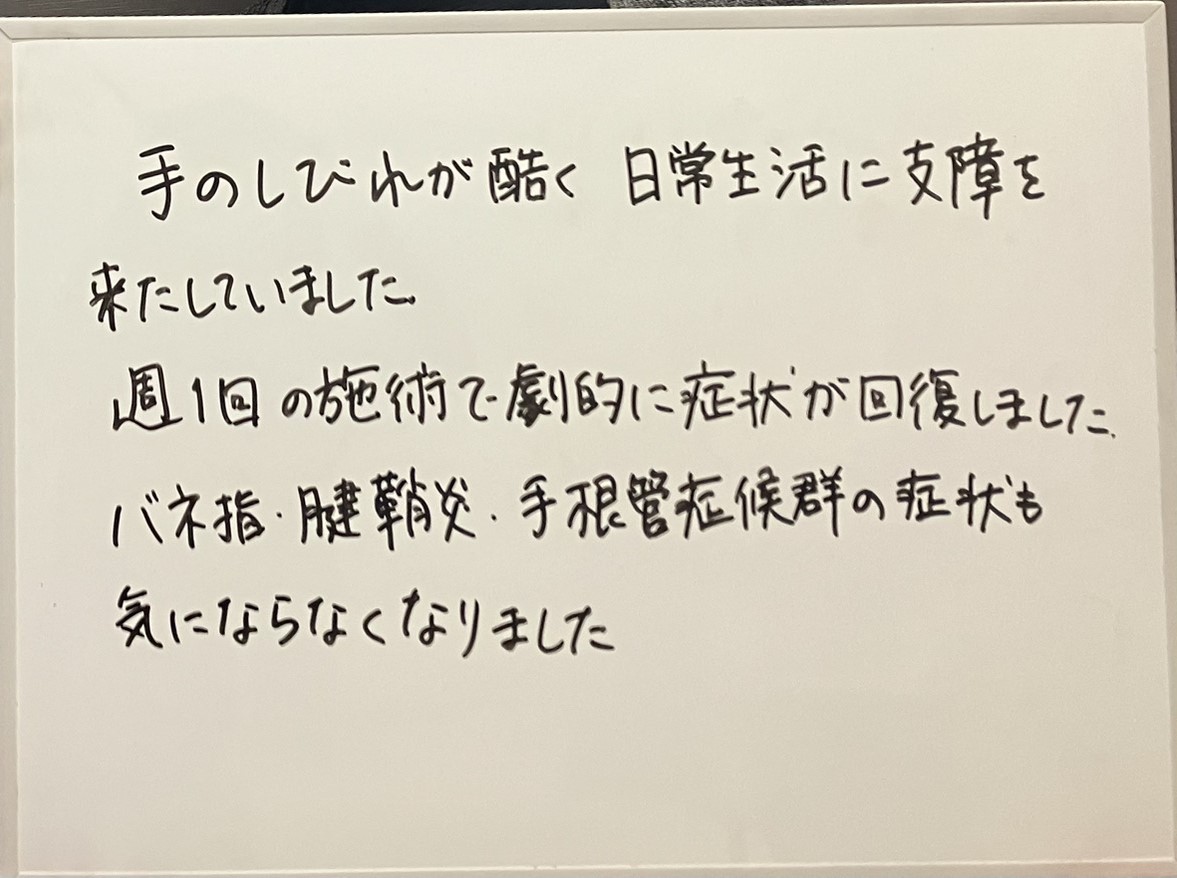 手のしびれが酷く 日常生活に支障を
来たしていました.
週1回の施術で劇的に症状が回復しました.
バネ指・腱鞘炎・手根管症候群の症状も
気にならなくなりました